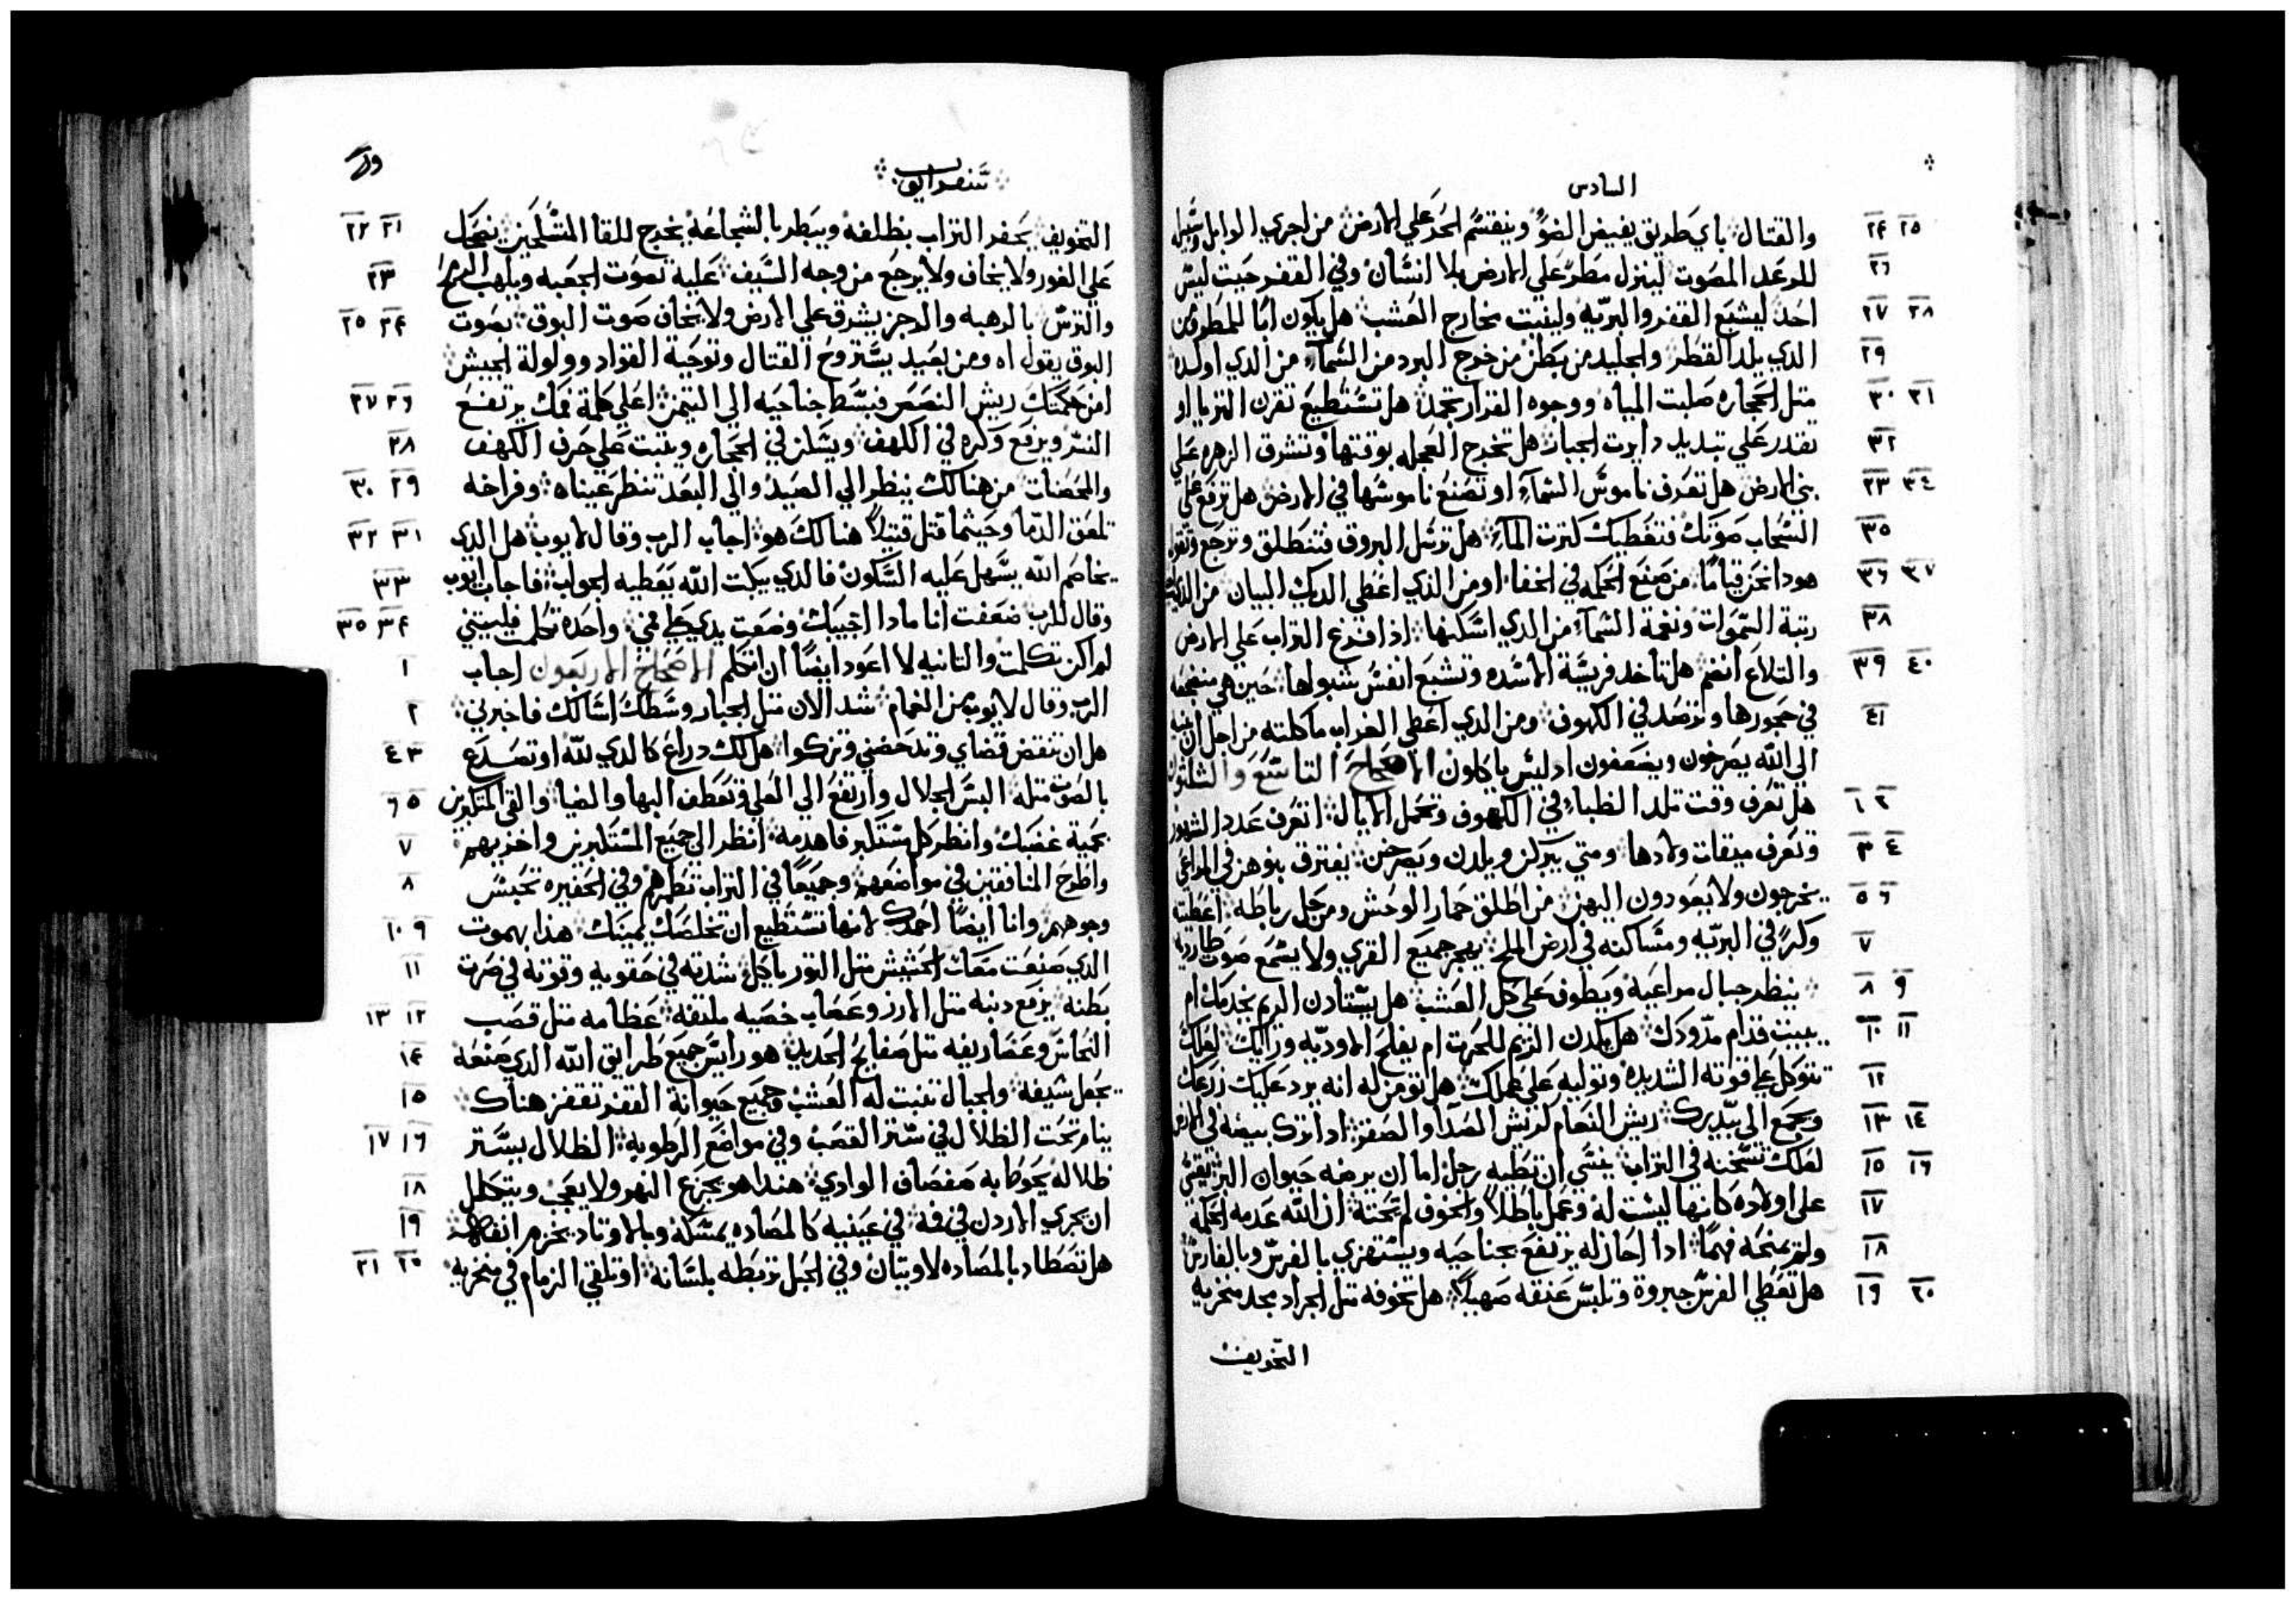 السادس
٢٥ ٢۴ والقتال باي طريق يفيض الضوّ وينقسم الحر علي الارض من اجري الوابل وسبيل
٢٦ للرعد المصوت لينزل مطر علي الارض بلا انسان وفي القفر حيت ليس
٢٨ ٢٧ احد ليشبع القفر والبريه ولينبت مخارج العشب هل يكون ابا للمطر ومن
٢٩ الدي يلد القطر والجليد من بطن من خرج البرد من السمآء من الدي اولده
٣١ ٣٠ متل الحجاره صلبت المياه ووجوه القرار تجمد هل تستطيع تقرن التريا او
٣٢ تقدر علي تبديد دايرت الجبار هل تخرج العجله بوقتها وتشرق الزهره علي
٣٤ ٣٣ بني الارض هل تعرف ناموس السمآء او تصنع ناموسها في الارض هل ترفع علي
٣٥ السحاب صوتك فتغطيك كترت المآء هل ترسل البروق فتنطلق وترجع وتقول
٣٧ ٣٦ هودا نحن قياما من صنع الحكمه في الخفا او من الدي اعطي الديك البيان من الدي
٣٨ رتبة السموات ونغمة السمآء من الدي اسكنها ادا افرغ التراب علي الارض
٤٠ ٣٩ والتلاع انضم هل تاخد فريسة الاسده وتشبع انفس شبولها حين هي مضجعه
٤١ في حجورها وترصد في الكهوف ومن الدي اعطي الغراب ماكلته من اجل ان بنيه
الي الله يصرخون ويضعفون اد ليس ياكلون الاصحاح التاسع والثلثون
٢ ١ هل تعرف وقت تلد الظباء في الكهوف وتحمل الايال اتعرف عدد الشهور
٤ ٣ وتعرف ميقات ولادها ومتي يبركن ويلدن ويصرخن يفترق بنوهن في المراعي
٦ ٥ يخرجون ولا يعودون اليهن من اطلق حمار الوحش ومن حل رباطه اعطيته
٧ وكرً في البريه ومساكنه في ارض الملح يهجر جميع القري ولا يسمع صوت طارديه
٩ ٨ ينظر جبال مراعيه ويطوف علي كل العشب هل يستادن الريم يخدمك ام
١١ ١٠ يبيت قدام مدودك هل يكدن الريم للحرت ام يفلح الاوديه وراك لعلك
١٢ تتوكل علي قوته الشديده وتوليه علي عملك هل تومن له انه يرد عليك زرعك
١٤ ١٣ ويجمع الي بيدرك ريش النعام لريش الصدا والصقر ادا ترك بيضه في الارض
١٦ ١٥ لعلك تسخنه في التراب ينسي ان تطيه رجل اما ان يرضه حيوان البر يقسي
١٧ علي اولاده كانها ليست له وعمل باطلا والخوف لم يحته ان الله عدمه الحكمه
١٨ ولم يمنحه فهما ادا احان له يرتفع بجناحيه ويستهزي بالفرس وبالفارس
٢٠ ١٩ هل تعطي الفرس جبروة وتلبس عنقه صهيلا هل تخوفه متل الجراد مجد منخريه
التخويف
سفر ايوب
٢١ ٢٢ التخويف يحفر التراب بظلفه ويبطر بالشجاعه يخرج للقا المتسلحين يضحك
٢٣ علي الفور ولا يخاف ولا يرجع من وجه السيف عليه تصوت الجعبه ويلهب الرمح
٢۴ ٢٥ والترس بالرهبه والرجز يشرق علي الارض ولا يخاف صوت البوق بصوت
البوق يقول اه ومن بعيد يستروح القتال وتوجية القواد وولولة الجيش
٢٦ ٢٧ امن حكمتك ريش النصر فبسط جناحيه الي التيمن اعلي كلمة فمك يرتفع
٢٨ النسر ويرفع وكره في الكهف ويسكن في الحجاره ويتبت علي حرف الكهف
٢٩ ٣٠ والمحصنات من هنالك ينظر الي الصيد والي البعد تنظر عيناه وفراخه
٣١ ٣٢ تلعق الدما وحيثما قتل قتيلا هنالك هو اجاب الرب وقال لايوب هل الدي
٣٣ يخاصم الله يسهل عليه السكون فالدي يبكت الله يعطيه الجواب فاجاب ايوب
٣۴ ٣٥ وقال للرب ضعفت انا مادا اجيبك وضعت يدي علي فمي واحده تكلمت فليتني
١ لم اكن تكلمت والتانيه لا اعود ايضا ان اتكلم الاصحاح الاربعون اجاب
٢ الرب وقال لايوب من الغمام شد الان متل الجبار وسطك اسالك فاخبرني
٣ ٤ هل ان تنقض قضاي وتدحضني وتزكوا هل لك دراع كالدي لله او تصدع
٥ ٦ بالصوت متله البس الجلال وارتفع الي العلي وتعطف البها والضيا والقي المتكبرين
٧ بحمية غضبك وانظر كل مستكبر فاهدمه انظر الي جميع المستكبرين واخزيهم
٨ واطرح المنافقين في مواضعهم وجميعا في التراب تطمرهم وفي الحفيره تحبس
٩ ١٠ وجوههم وانا ايضا احمدك لانها تستطيع ان تخلصك يمينك هدا بهموت
١١ الدي صنعت معك الحشيش متل التور ياكل شدته في حقويه وقوته في صرت
١٢ ١٣ بطنه يرفع دنبه متل الارز وعصاب خصيه ملتفه عظامه متل قصب
١۴ النحاس وغضاريفه متل صفايح الحديد هو رايس جميع طرايق الله الدي صنعه
١٥ يجعل سيفه والجبال تنبت له العشب وجميع حيوانة القفر تقفز هناك
١٦ ١٧ ينام تحت الظلال في ستر القصب وفي مواضع الرطوبه الظلال يستر
١٨ ظلاله يحوطا به صفصاف الوادي هندا هو يجرع النهر ولا يعجب ويتكل
١٩ ان يجري الاردن في فه في عينيه كالمصاده يمسكه وبالاوتاد يخزم انفه
٢٠ ٢١ هل تصطاد بالمصاده لاويتان وفي الحبل تربطه بلسانه او تلقي الزمام في منخريه